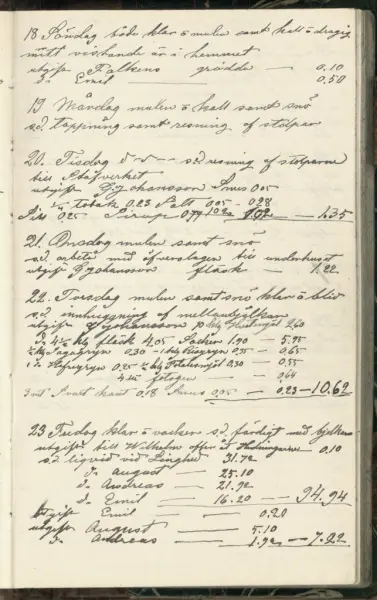 18 Söndag både klar o mulen samt kall o dragig
mitt vistande är i hemmet
utgift Falkens grädde — 0,10
d. Emil — 0,50
19 Måndag mulen o kall samt snö
s.d. tappning samt resning af stolpar
20. Tisdag d d — s.d. resning af stolparne
till Stafverket
utgift G Johansson Smör 0,05
tobak 0,23 Salt 0,05 - 0,28
Sill 0,25 Sirup 0,77 1,02 — 1,35
21. Onsdag mulen samt snö
s.d. arbete med öfverslagen till underhuset
utgift G Johansson fläsk — 1,22
22. Torsdag mulen samt snö klar o blid
s.d. inhuggning af mellanbjälkar
utgift G Johansson 2,60
d. 4½ kg fläsk 4,05 Socker 1,90 — 5,95
Sagogryn 0,30 - Risgryn 0,35 — 0,65
Hafregryn 0,25 Potatismjöl 0,30 — 0,55
fotogen — 0,64
Svart 0,18 0,05 — 0,23 — 10,62
23 Fredag klar o vacker s.d. färdigt med bjelkar
utgift till Wilhelm offer 0,10
s.d. liqvid vid Ljunghed 31.72
d. August — 25.10
d. Andreas — 21.92
d. Emil — 16.20 — 94.94
utgift Emil — 0,20
utgift August — 5.10
d. Andreas — 1.92 — 7.22